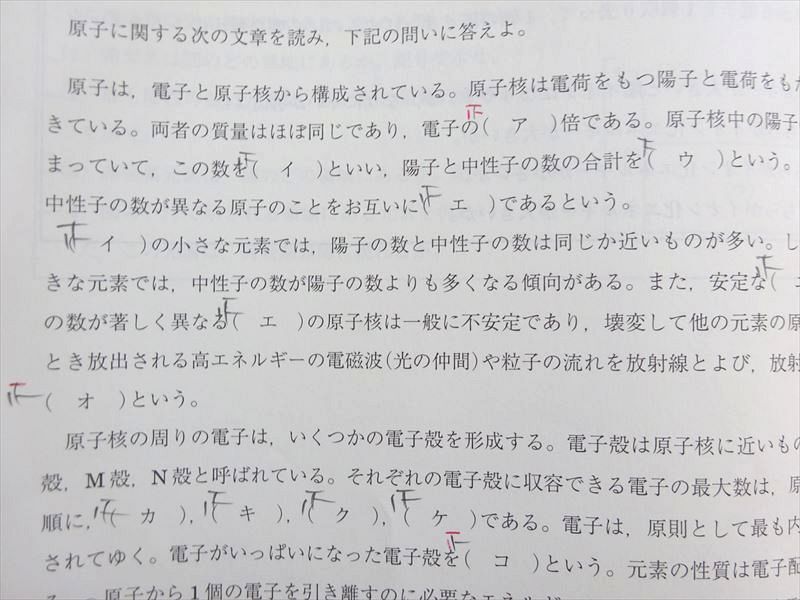 原子に関する次の文章を読み，下記の問いに答えよ。
原子は，電子と原子核から構成されている。原子核は電荷をもつ陽子と電荷をもた
きている。両者の質量はほぼ同じであり，電子の(　ア　)倍である。原子核中の陽子
正
まっていて，この数を(　イ　)といい，陽子と中性子の数の合計を(　ウ　)という。
正 正
中性子の数が異なる原子のことをお互いに(　エ　)であるという。
正
(　イ　)の小さな元素では，陽子の数と中性子の数は同じか近いものが多い。し
正
きな元素では，中性子の数が陽子の数よりも多くなる傾向がある。また，安定な(　エ
正
の数が著しく異なる(　エ　)の原子核は一般に不安定であり，壊変して他の元素の原
正
とき放出される高エネルギーの電磁波(光の仲間)や粒子の流れを放射線とよび，放射
正 (　オ　)という。
原子核の周りの電子は，いくつかの電子殻を形成する。電子殻は原子核に近いもの
殻，M殻，N殻と呼ばれている。それぞれの電子殻に収容できる電子の最大数は，原
順に，(　カ　)，(　キ　)，(　ク　)，(　ケ　)である。電子は，原則として最も内
正 正 正 正
されてゆく。電子がいっぱいになった電子殻を(　コ　)という。元素の性質は電子配
正
原子から1個の電子を引き離すのに必要なエネルギ